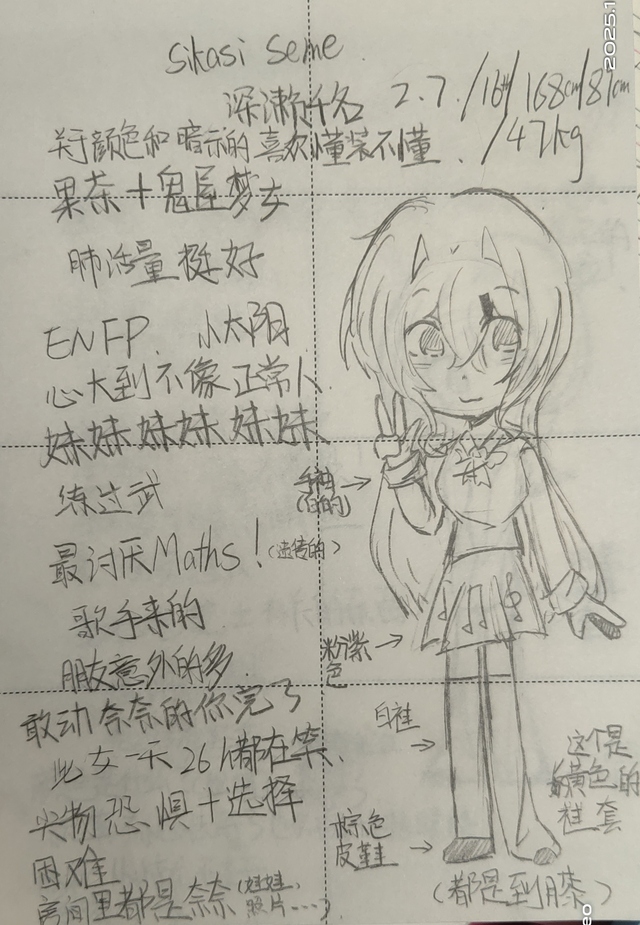 sikasi seme
深濑所名 2.7./16th/168cm/81cm
/47kg
关于颜色和暗示的喜欢懂装不懂.
果茶+鬼屋梦女
肺活量挺好
ENFP. 小太阳
心大到不像正常人.
妹妹妹妹妹妹
练过武
最讨厌Maths!(遗传的)
歌手来的
朋友意外的多.
敢动奈奈的你完了
此女一天26h都在笑.
尖物恐惧+选择
困难
房间里都是奈奈(娃娃,
照片……)
手袖
(白的)
粉紫
色
白袜
棕色
皮鞋
这个是
黄色的
袜套
(都是到膝)
2025.1